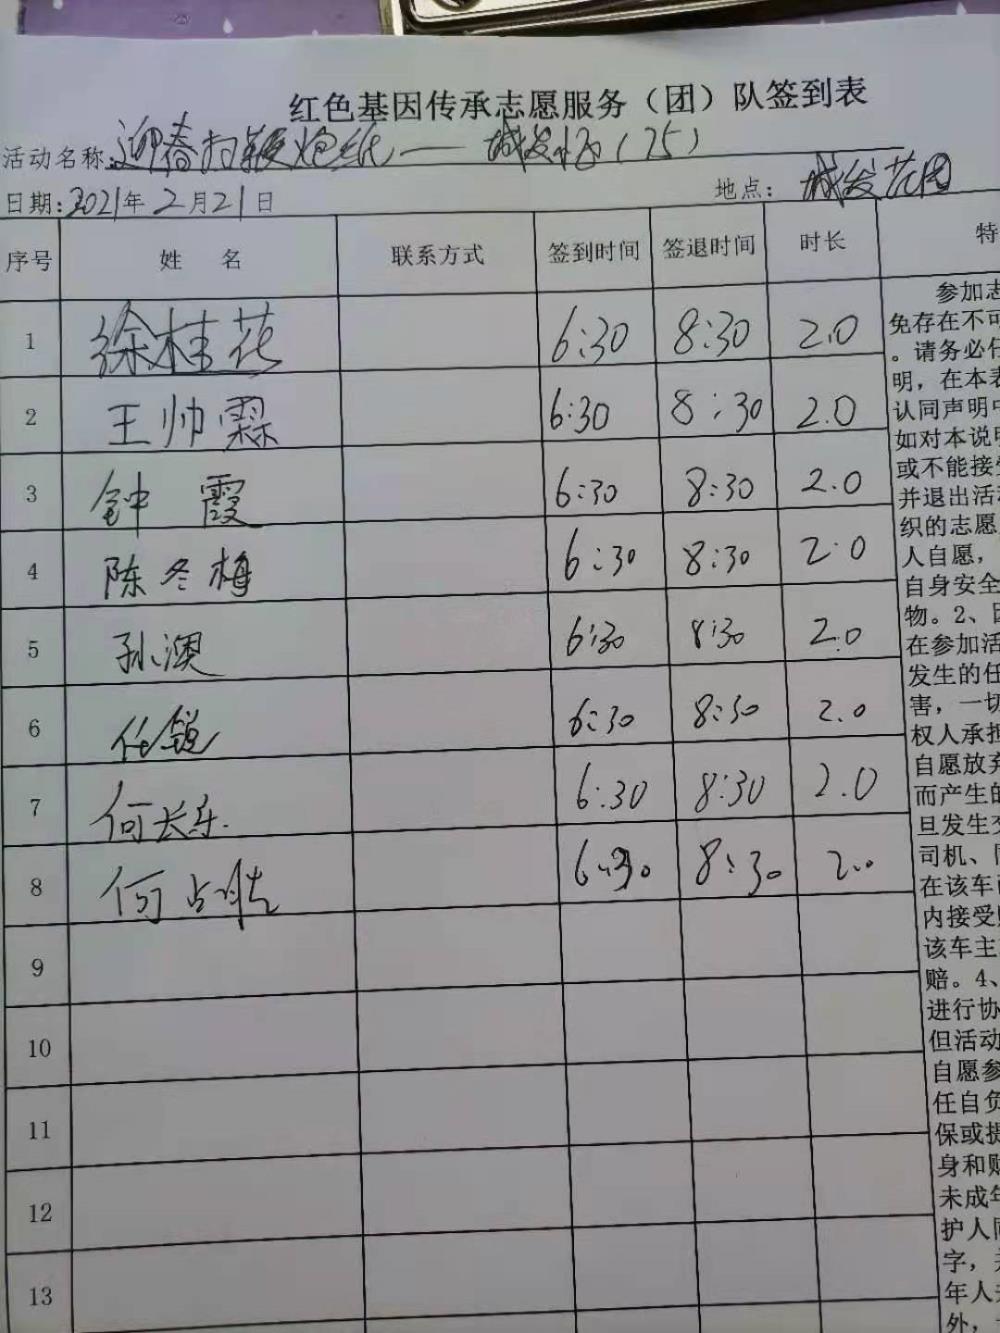 红色基因传承志愿服务（团）队签到表
活动名称:迎春扫鞭炮纸——城发（75）
日期:2021年2月21日 地点：城发花园
序号 姓 名 联系方式 签到时间 签退时间 时长 特
1 徐桂花 6:30 8:30 2.0
2 王帅霖 6:30 8:30 2.0
3 钟霞 6:30 8:30 2.0
4 陈冬梅 6:30 8:30 2.0
5 孙澳 6:30 8:30 2.0
6 任锐 6:30 8:30 2.0
7 何长乐 6:30 8:30 2.0
8 何占胜 6:30 8:30 2.0
9
10
11
12
13
参加志
免存在不可
。请务必仔
明，在本表
认同声明中
如对本说明
或不能接受
并退出活动
织的志愿
人自愿，
自身安全
物。2、因
在参加活
发生的任
害，一切
权人承担
自愿放弃
而产生的
旦发生交
司机、同
在该车
内接受
该车主
赔。4、
进行协
但活动
自愿参
任自负
保或提
身和财
未成年
护人同
字，
年人
外，